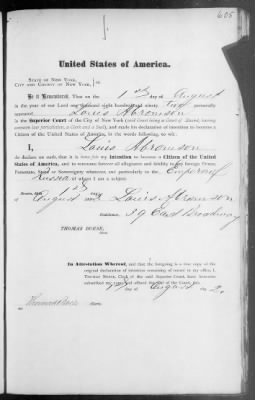 605
United States of America.
STATE OF NEW YORK,
CITY AND COUNTY OF NEW YORK, ss.
Be it Remembered, That on the 1st day of August
in the year of our Lord one thousand eight hundred and ninety two personally
appeared Louis Abromson
in the Superior Court of the City of New York (said Court being a Court of Record, having
common law jurisdiction, a Clerk and a Seal), and made his declaration of intention to become a
Citizen of the United States of America, in the words following, to wit:
I, Louis Abromson
do declare on oath, that it is bona fide my intention to become a Citizen of the United
States of America, and to renounce forever all allegiance and fidelity to any foreign Prince,
Potentate, State or Sovereignty whatever, and particularly to the Emperor of
Russia of whom I am a subject.
Sworn, this 1st day
of August 1892 Louis Abromson
Residence, 39 East Broadway
THOMAS BOESE, Clerk
In Attestation Whereof, and that the foregoing is a true copy of the
original declaration of intention remaining of record in my office, I,
THOMAS BOESE, Clerk of the said Superior Court, have hereunto
subscribed my name and affixed the seal of the said Court, this
day of August 1892.
Thomas Boese Clerk.